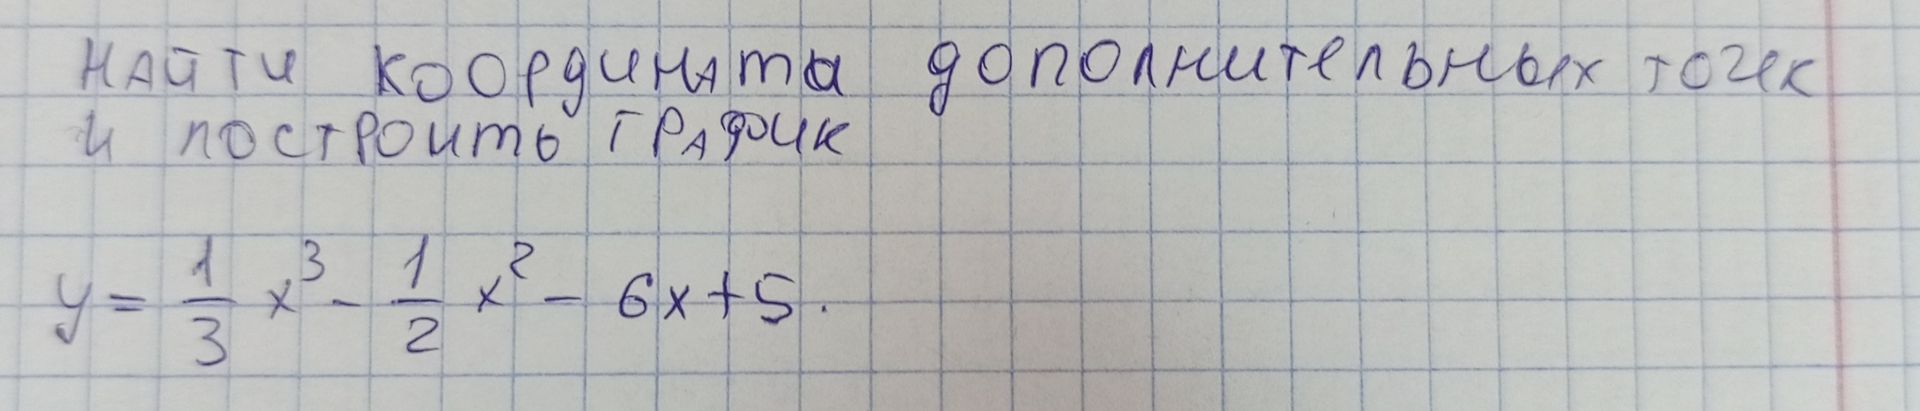 НАЙТИ КООРДИНАТЫ ДОПОЛНИТЕЛЬНЫХ ТОЧЕК
И ПОСТРОИТЬ ГРАФИК
y = 1/3 x³ - 1/2 x² - 6x + 5.